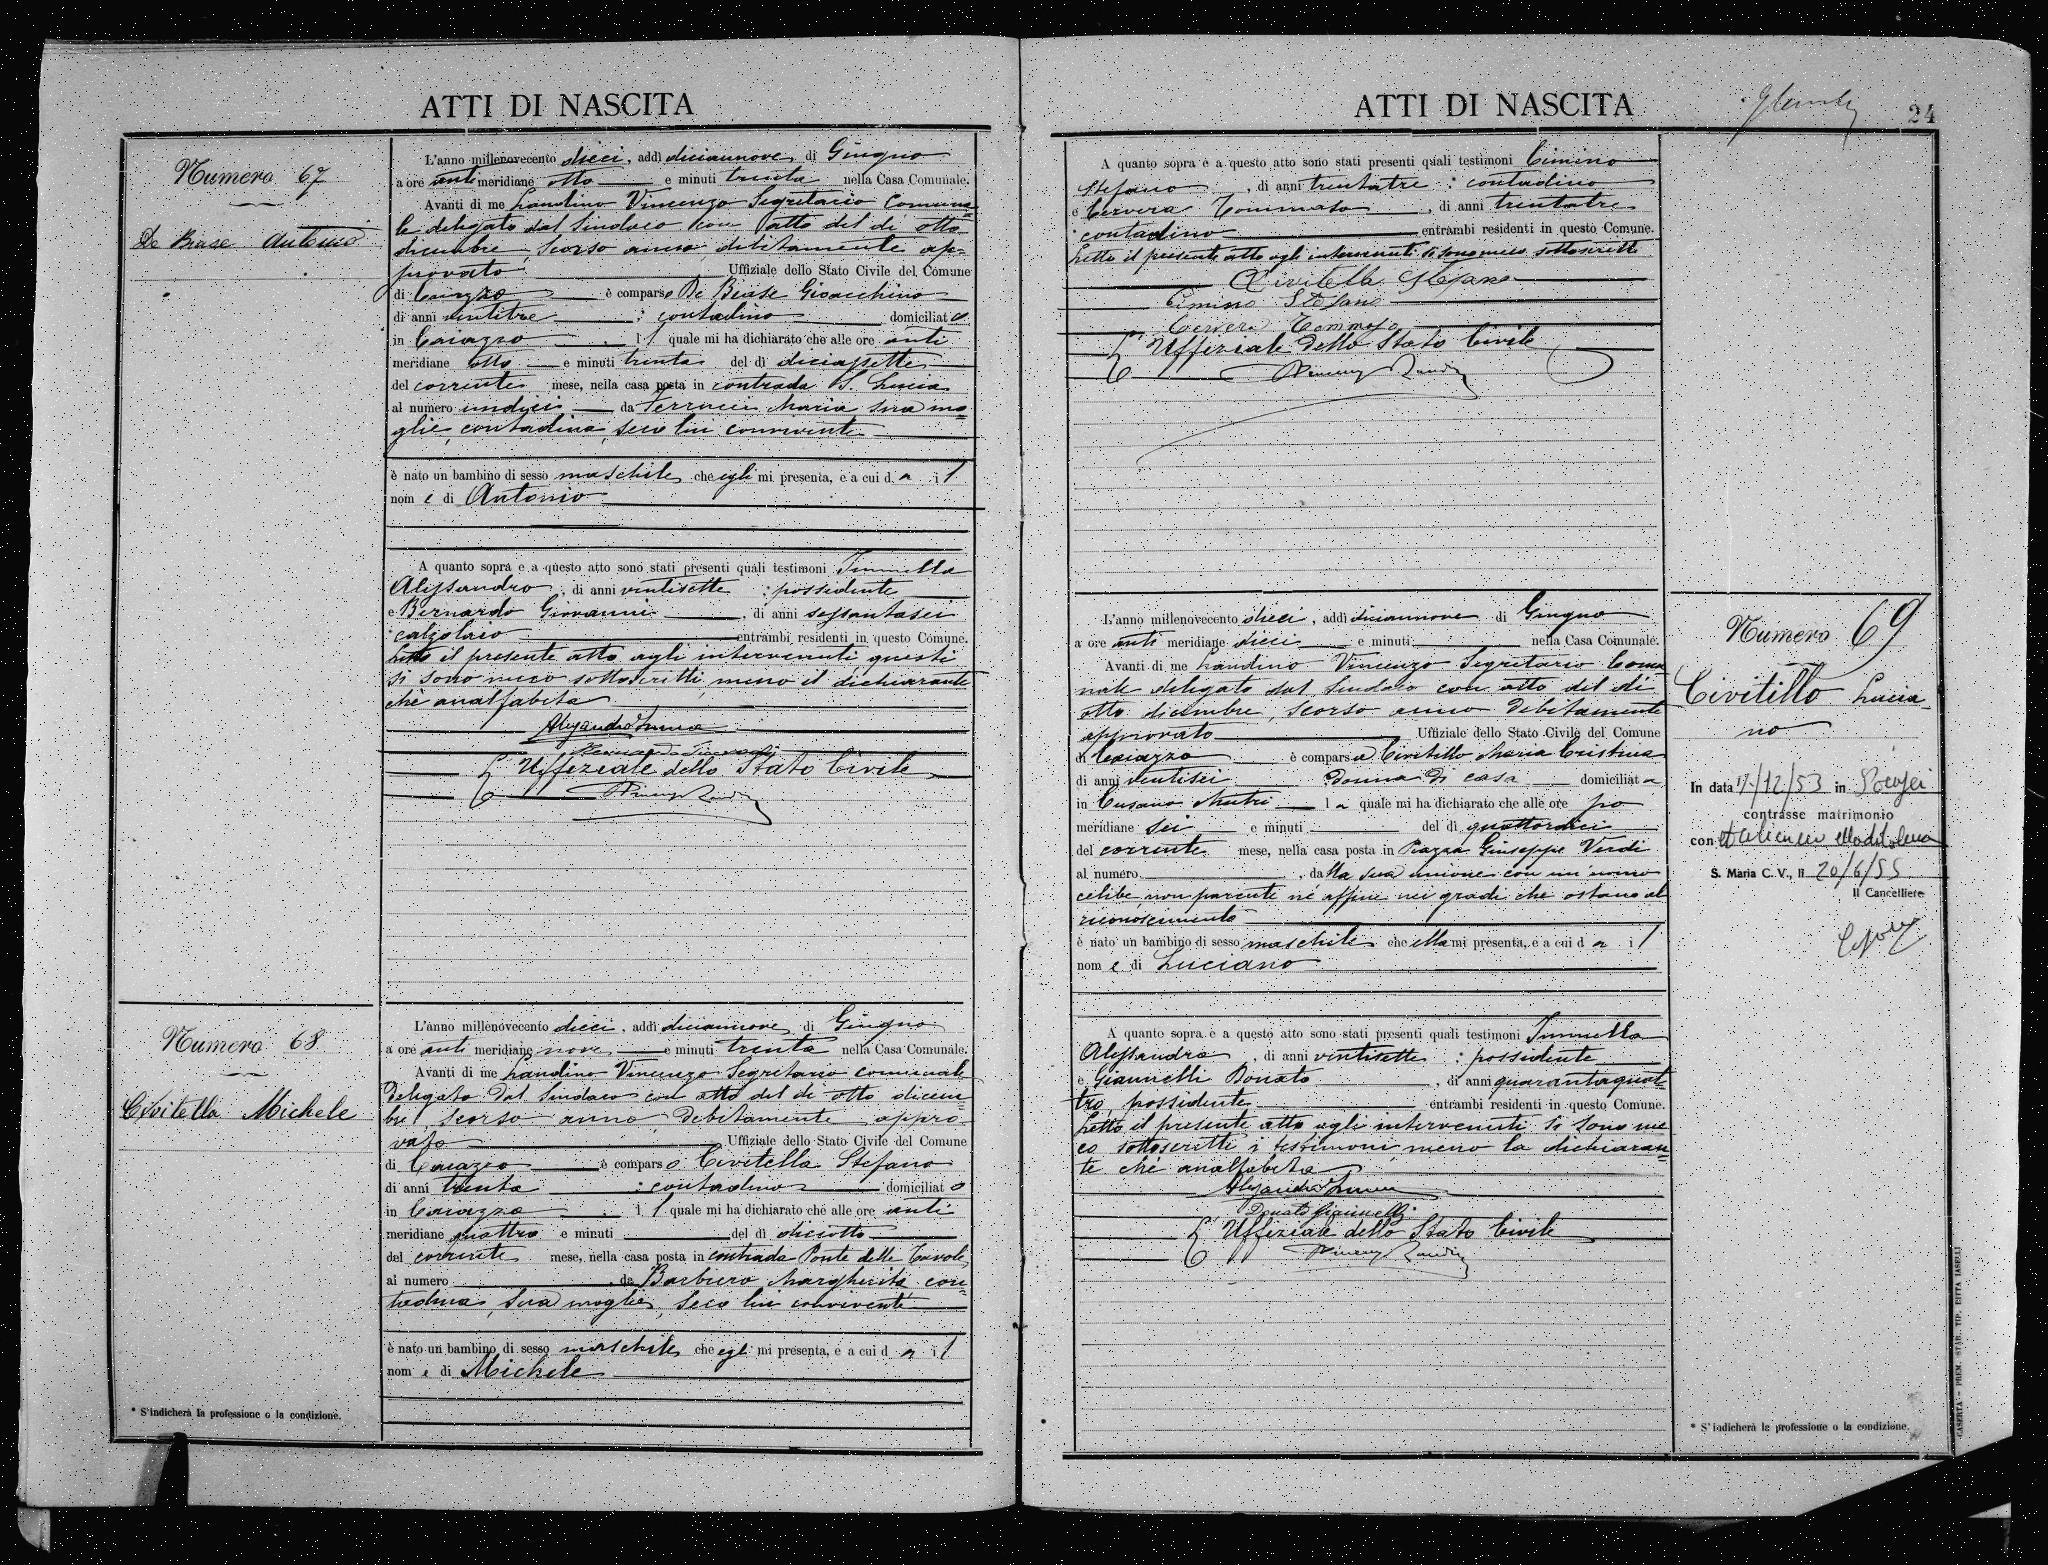 ATTI DI NASCITA
Numero 67
De Biase Antonio
L'anno millenovecento dieci, addì diciannove di Giugno
a ore antimeridiane otto e minuti trenta nella Casa Comunale.
Avanti di me Landino Vincenzo Segretario Comuna=
le delegato dal Sindaco con atto del dì otto
dicembre, scorso anno, debitamente ap=
provato Uffiziale dello Stato Civile del Comune
di Caiazzo è comparso De Biase Gioacchino
di anni ventitre : contadino domiciliato
in Caiazzo il quale mi ha dichiarato che alle ore anti
meridiane otto e minuti trenta del dì diciassette
del corrente mese, nella casa posta in contrada S. Lucia
al numero undici da Terracci Maria sua mo=
glie, contadina, seco lui convivente
è nato un bambino di sesso maschile che egli mi presenta, e a cui da il
nome di Antonio
A quanto sopra e a questo atto sono stati presenti quali testimoni
Alessandro, di anni ventisette : possidente
e Bernardo Giovanni, di anni sessantasei
calzolaio entrambi residenti in questo Comune.
Letto il presente atto agli intervenuti questi
si sono meco sottoscritti, meno il dichiarante
chè analfabeta
L'Uffiziale dello Stato Civile
Numero 68
Civitella Michele
L'anno millenovecento dieci, addì diciannove di Giugno
a ore anti meridiane nove e minuti trenta nella Casa Comunale.
Avanti di me Landino Vincenzo Segretario comunale
delegato dal Sindaco con atto del dì otto dicem=
bre, scorso anno, debitamente appro=
vato Uffiziale dello Stato Civile del Comune
di Caiazzo è comparso Civitella Stefano
di anni trenta : contadino domiciliato
in Caiazzo il quale mi ha dichiarato che alle ore anti
meridiane quattro e minuti del dì diciotto
del corrente mese, nella casa posta in contrada Ponte delle Tavole
al numero da Barbiero Margherita con=
tadina, sua moglie, seco lui convivente
è nato un bambino di sesso maschile che egli mi presenta, e a cui da il
nome di Michele
* S'indicherà la professione o la condizione.
ATTI DI NASCITA
24
A quanto sopra e a questo atto sono stati presenti quali testimoni Cimino
Stefano, di anni trentatre : contadino
e Cervera Tommaso, di anni trentatre
: contadino entrambi residenti in questo Comune.
Letto il presente atto agli intervenuti si sono meco sottoscritti
Civitella Stefano
Cimino Stefano
Cervera Tommaso
L'Uffiziale dello Stato Civile
L'anno millenovecento dieci, addì diciannove di Giugno
a ore anti meridiane dieci e minuti nella Casa Comunale.
Avanti di me Landino Vincenzo Segretario Comu
nale delegato dal Sindaco con atto del dì
otto dicembre, scorso anno debitamente
approvato Uffiziale dello Stato Civile del Comune
di Caiazzo è comparsa Civitillo Maria Cristina
di anni ventisei donna di casa domiciliata
in Cusano Mutri la quale mi ha dichiarato che alle ore po
meridiane sei e minuti del dì quattordici
del corrente mese, nella casa posta in Piazza Giuseppe Verdi
al numero, dalla sua unione con un uomo
celibe, non parente nè affine nei gradi che ostano al
riconoscimento
è nato un bambino di sesso maschile che ella mi presenta, e a cui da il
nome di Luciano
A quanto sopra e a questo atto sono stati presenti quali testimoni
Alessandro, di anni ventisette : possidente
e Giannelli Donato, di anni quarantaquat
tro, possidente entrambi residenti in questo Comune.
Letto il presente atto agli intervenuti si sono me
co sottoscritti i testimoni meno la dichiaran=
te chè analfabeta
Donato Giannelli
L'Uffiziale dello Stato Civile
Numero 69
Civitillo Lucia
no
In data 17/12/53 in
contrasse matrimonio
con
S. Maria C. V., lì 20/6/55
Il Cancelliere
* S'indicherà la professione o la condizione.
CASERTA - PREM. STAB. TIP. DITTA IASELLI